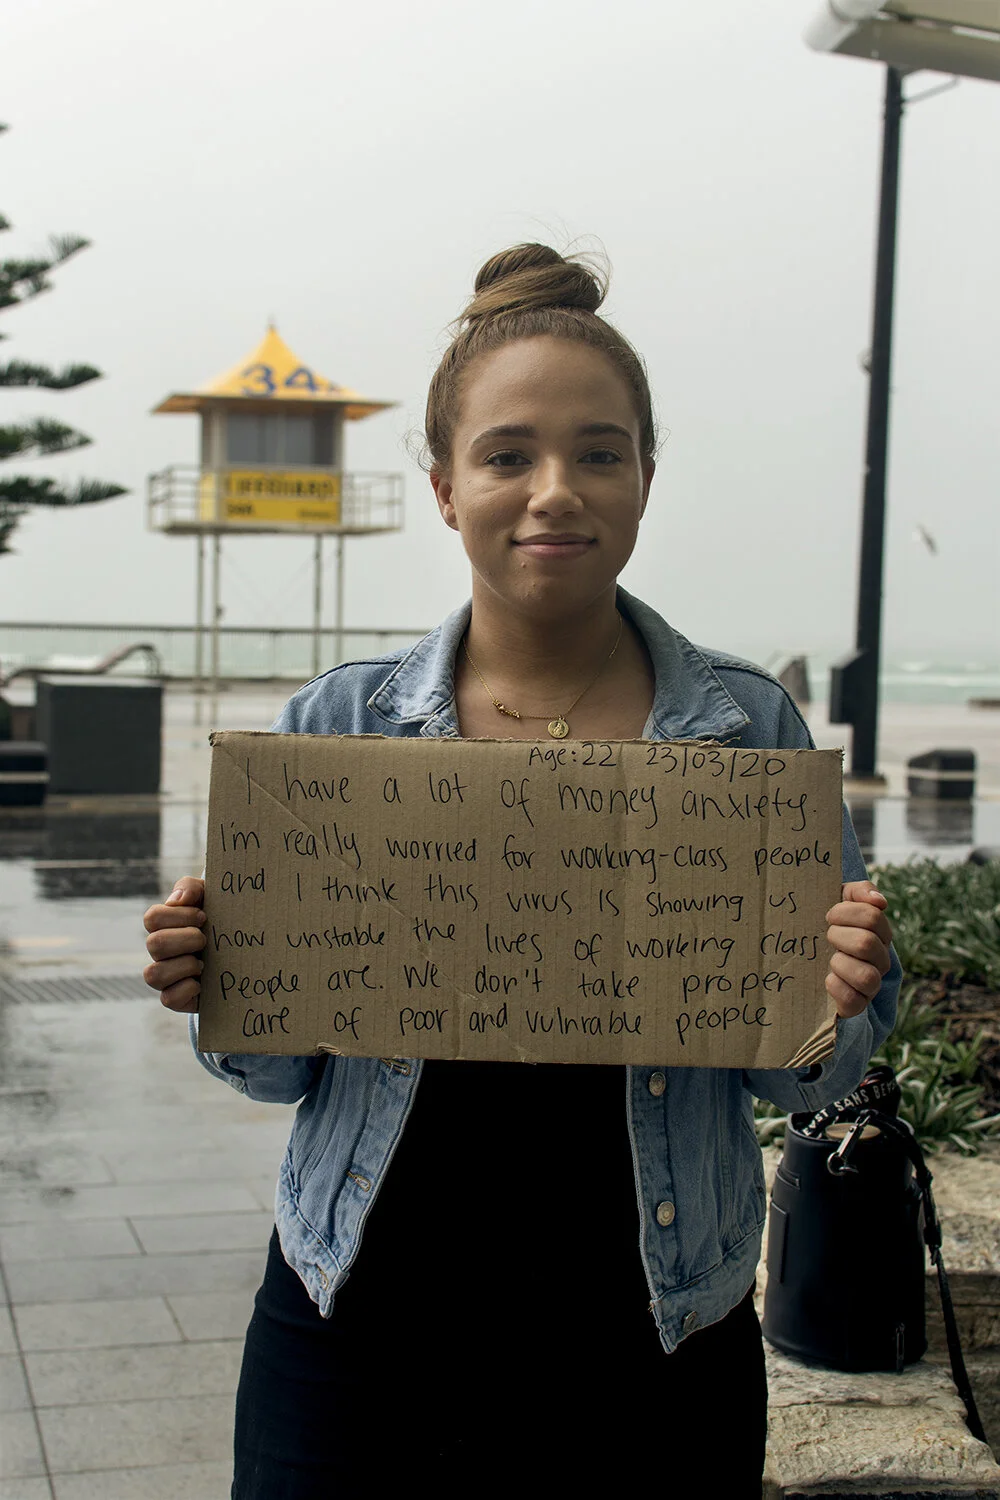 34
LIFEGUARD
34
Age:22 23/03/20
I have a lot of money anxiety.
I'm really worried for working-class people
and I think this virus is showing us
how unstable the lives of working class
people are. We don't take proper
care of poor and vulnrable people
SANS